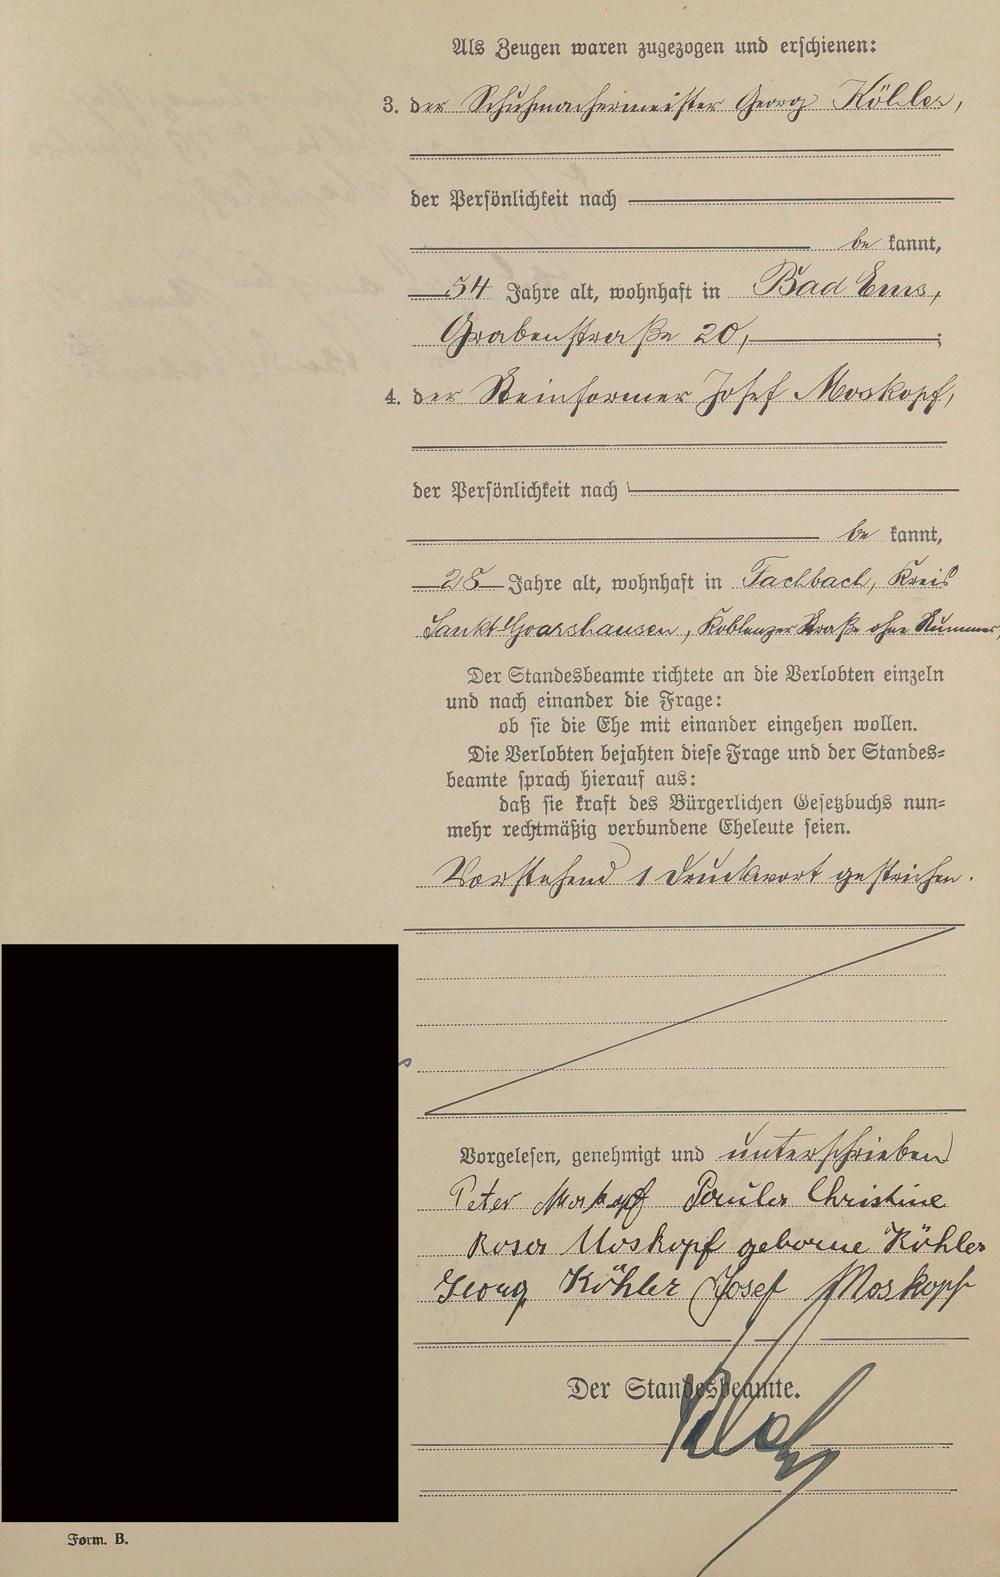 Als Zeugen waren zugezogen und erschienen:
3. der Schuhmachermeister Georg Köhler,
der Persönlichkeit nach
be kannt,
54 Jahre alt, wohnhaft in Bad Ems,
Grabenstraße 20, ;
4. der Steinformer Josef Moskopf,
der Persönlichkeit nach
be kannt,
28 Jahre alt, wohnhaft in Fachbach, Kreis
Sankt Goarshausen, Koblenzer Straße ohne Nummer,
Der Standesbeamte richtete an die Verlobten einzeln
und nach einander die Frage:
ob sie die Ehe mit einander eingehen wollen.
Die Verlobten bejahten diese Frage und der Standes-
beamte sprach hierauf aus:
daß sie kraft des Bürgerlichen Gesetzbuchs nun-
mehr rechtmäßig verbundene Eheleute seien.
Vorstehend 1 Druckwort gestrichen.
Vorgelesen, genehmigt und unterschrieben
Peter Moskopf Paula Christine
Rosa Moskopf geborne Köhler
Georg Köhler Josef Moskopf
Der Standesbeamte.
Form. B.